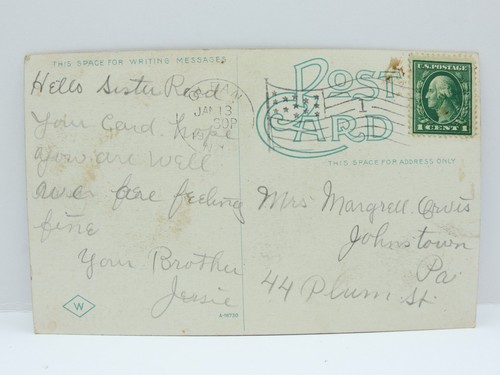 THIS SPACE FOR WRITING MESSAGES
Hello Sister Recd
Your Card Hope
you are well
feeling
fine
Your Brother
Jessie
W
JAN 13
1
POST
CARD
U.S. POSTAGE
1 CENT 1
THIS SPACE FOR ADDRESS ONLY
Mrs Margrell Orvis
Johnstown
Pa
44 Plum St.